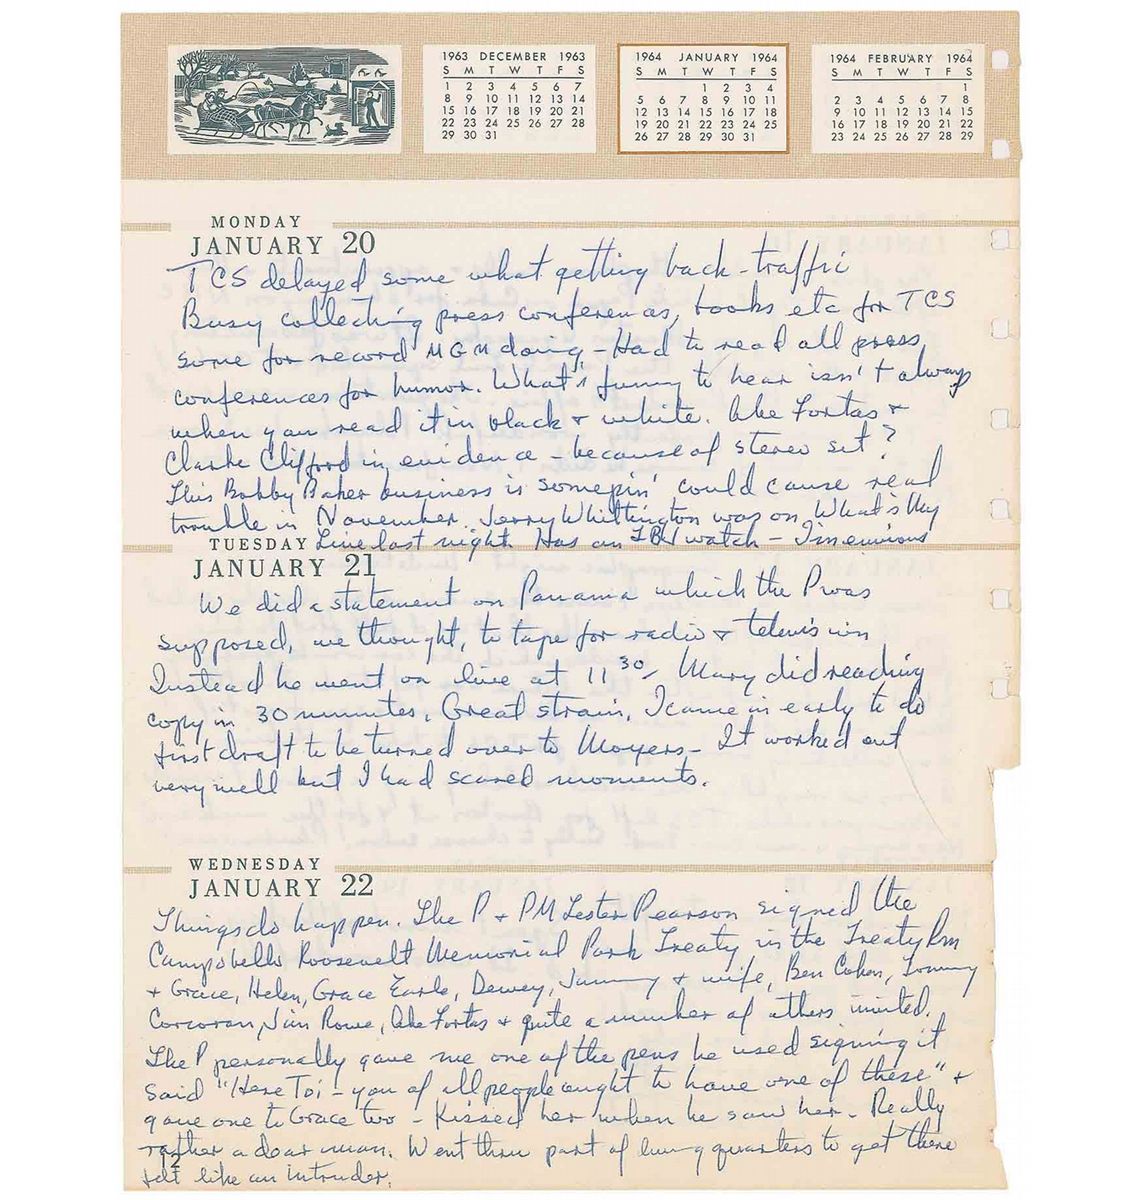 1963 DECEMBER 1963
S M T W T F S
1 2 3 4 5 6 7
8 9 10 11 12 13 14
15 16 17 18 19 20 21
22 23 24 25 26 27 28
29 30 31
1964 JANUARY 1964
S M T W T F S
1 2 3 4
5 6 7 8 9 10 11
12 13 14 15 16 17 18
19 20 21 22 23 24 25
26 27 28 29 30 31
1964 FEBRUARY 1964
S M T W T F S
1
2 3 4 5 6 7 8
9 10 11 12 13 14 15
16 17 18 19 20 21 22
23 24 25 26 27 28 29
MONDAY
JANUARY 20
TCS delayed some what getting back - traffic
Busy collecting press conferences, books etc for TCS
some for record MGM doing - Had to read all press
conferences for humor. What's funny to hear isn't always
when you read it in black & white. Abe Fortas &
Clarke Clifford in evidence - because of stereo set?
This Bobby Baker business is somepin' could cause real
trouble in November. Jerry Whittington was on What's My
Line last night. Has an LBJ watch - I'm envious
TUESDAY
JANUARY 21
We did a statement on Panama which the P was
supposed, we thought, to tape for radio & television
Instead he went on live at 11 30 Mary did reading
copy in 30 minutes. Great strain. I came in early to do
first draft to be turned over to Moyers - It worked out
very well but I had scared moments.
WEDNESDAY
JANUARY 22
Things do happen. The P & PM Lester Pearson signed the
Campobello Roosevelt Memorial Park Treaty in the Treaty Rm
& Grace, Helen, Grace Earle, Dewey, Jimmy & wife, Ben Cohen, Tommy
Corcoran, Jim Rowe, Abe Fortas & quite a number of others invited.
The P personally gave me one of the pens he used signing it
said "Here Toi - you of all people ought to have one of these" &
gave one to Grace too - Kissed her when he saw her - Really
rather a dear man. Went thru part of living quarters to get there
felt like an intruder.